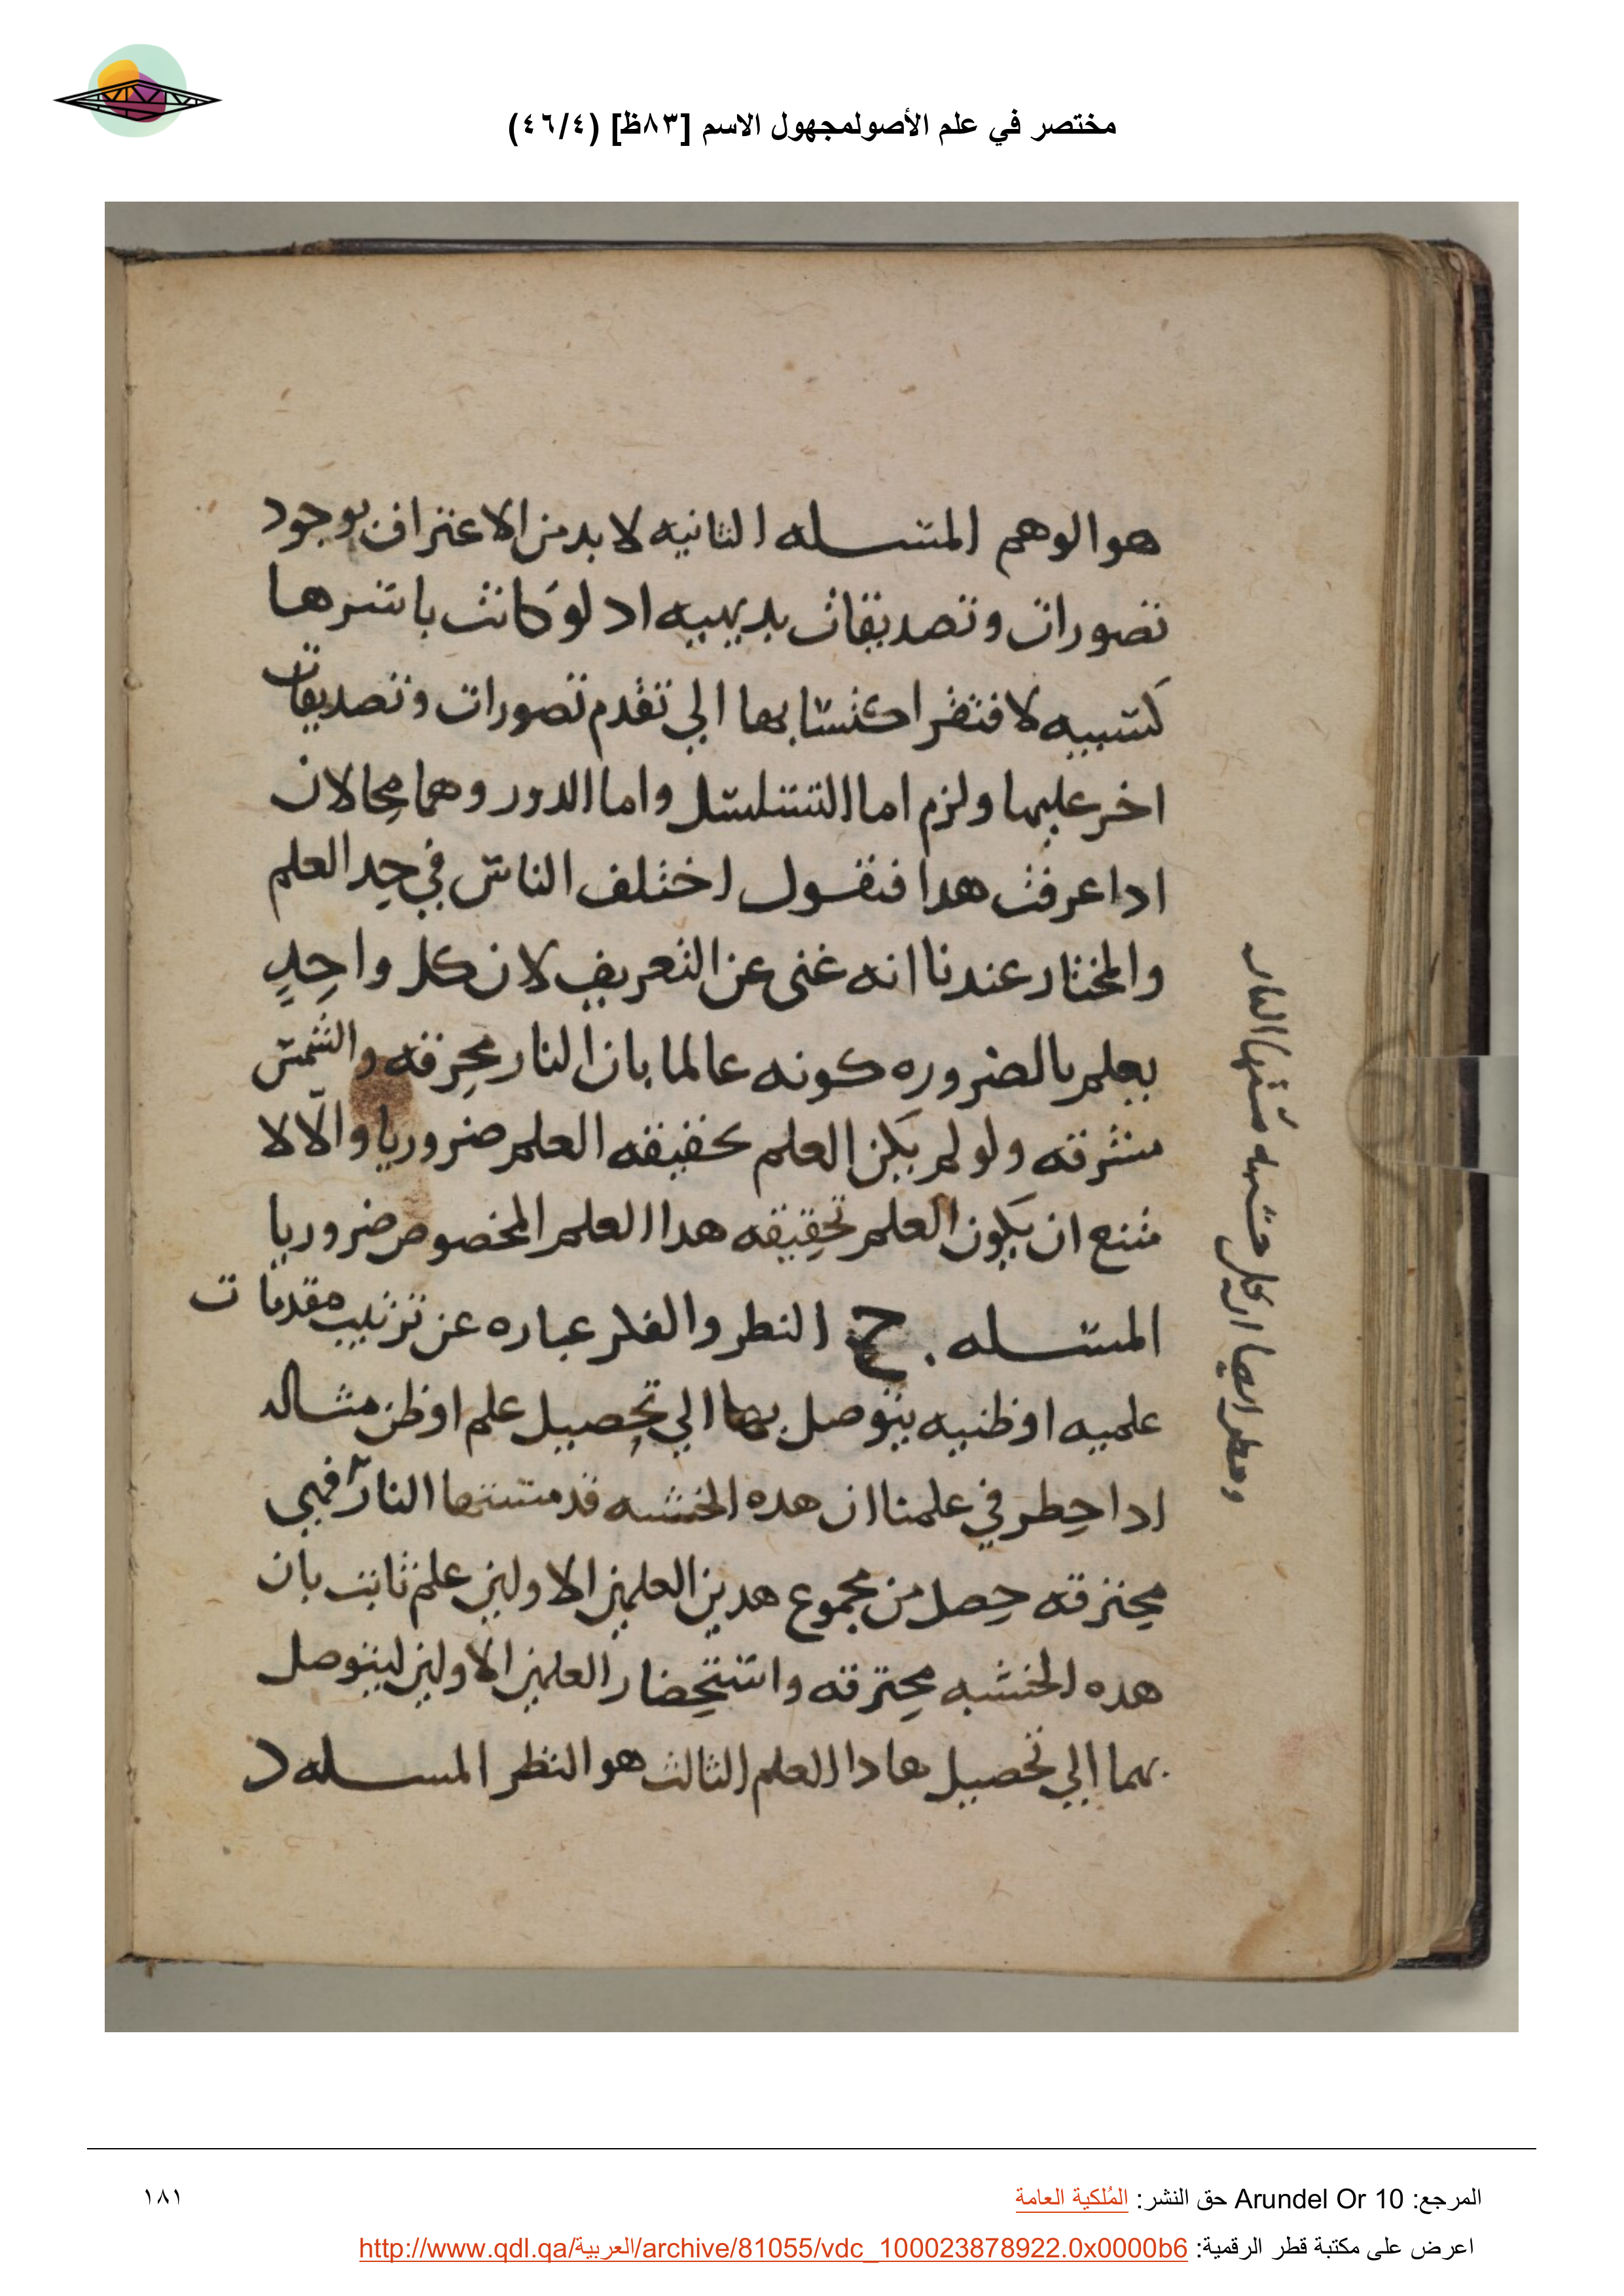 مختصر في علم الأصولمجهول الاسم [٨٣ظ] (٤٦/٤)
هو الوهم المسله الثانيه لا بد من الاعتراف بوجود
تصورات وتصديقات بديهيه اد لو كانت باسرها
كسبيه لافتقر اكتسابها الي تقدم تصورات وتصديقات
اخر عليها ولزم اما التسلسل واما الدور وهما محالان
ادا عرفت هدا فنقول اختلف الناس في حد العلم
والمختار عندنا انه غنى عن التعريف لان كل واحدٍ
يعلم بالضروره كونه عالما بان النار محرقه والشمس
مشرقه ولو لم يكن العلم بحقيقه العلم ضروريا والّا لا
متنع ان يكون العلم بحقيقه هدا العلم المخصوص ضروريا
المسله . ج النطر والفكر عباره عن ترتيب مقدمات
علميه او ظنيه يتوصل بها الي تحصيل علم او ظن مثاله
ادا حطر في علمنا ان هده الخشبه قد مستها النار فهي
محترقه حصل من مجموع هدين العلمين الاولين علم ثابت بان
هده الخشبه محترقه واستحضار العلمين الاولين ليتوصل
بهما الي تحصيل هادا العلم الثالث هو النظر المسله د
وحطر ايضا ان كل خشبه مَستها النار
المرجع: Arundel Or 10 حق النشر: المُلكية العامة
١٨١
اعرض على مكتبة قطر الرقمية: http://www.qdl.qa/العربية/archive/81055/vdc_100023878922.0x0000b6